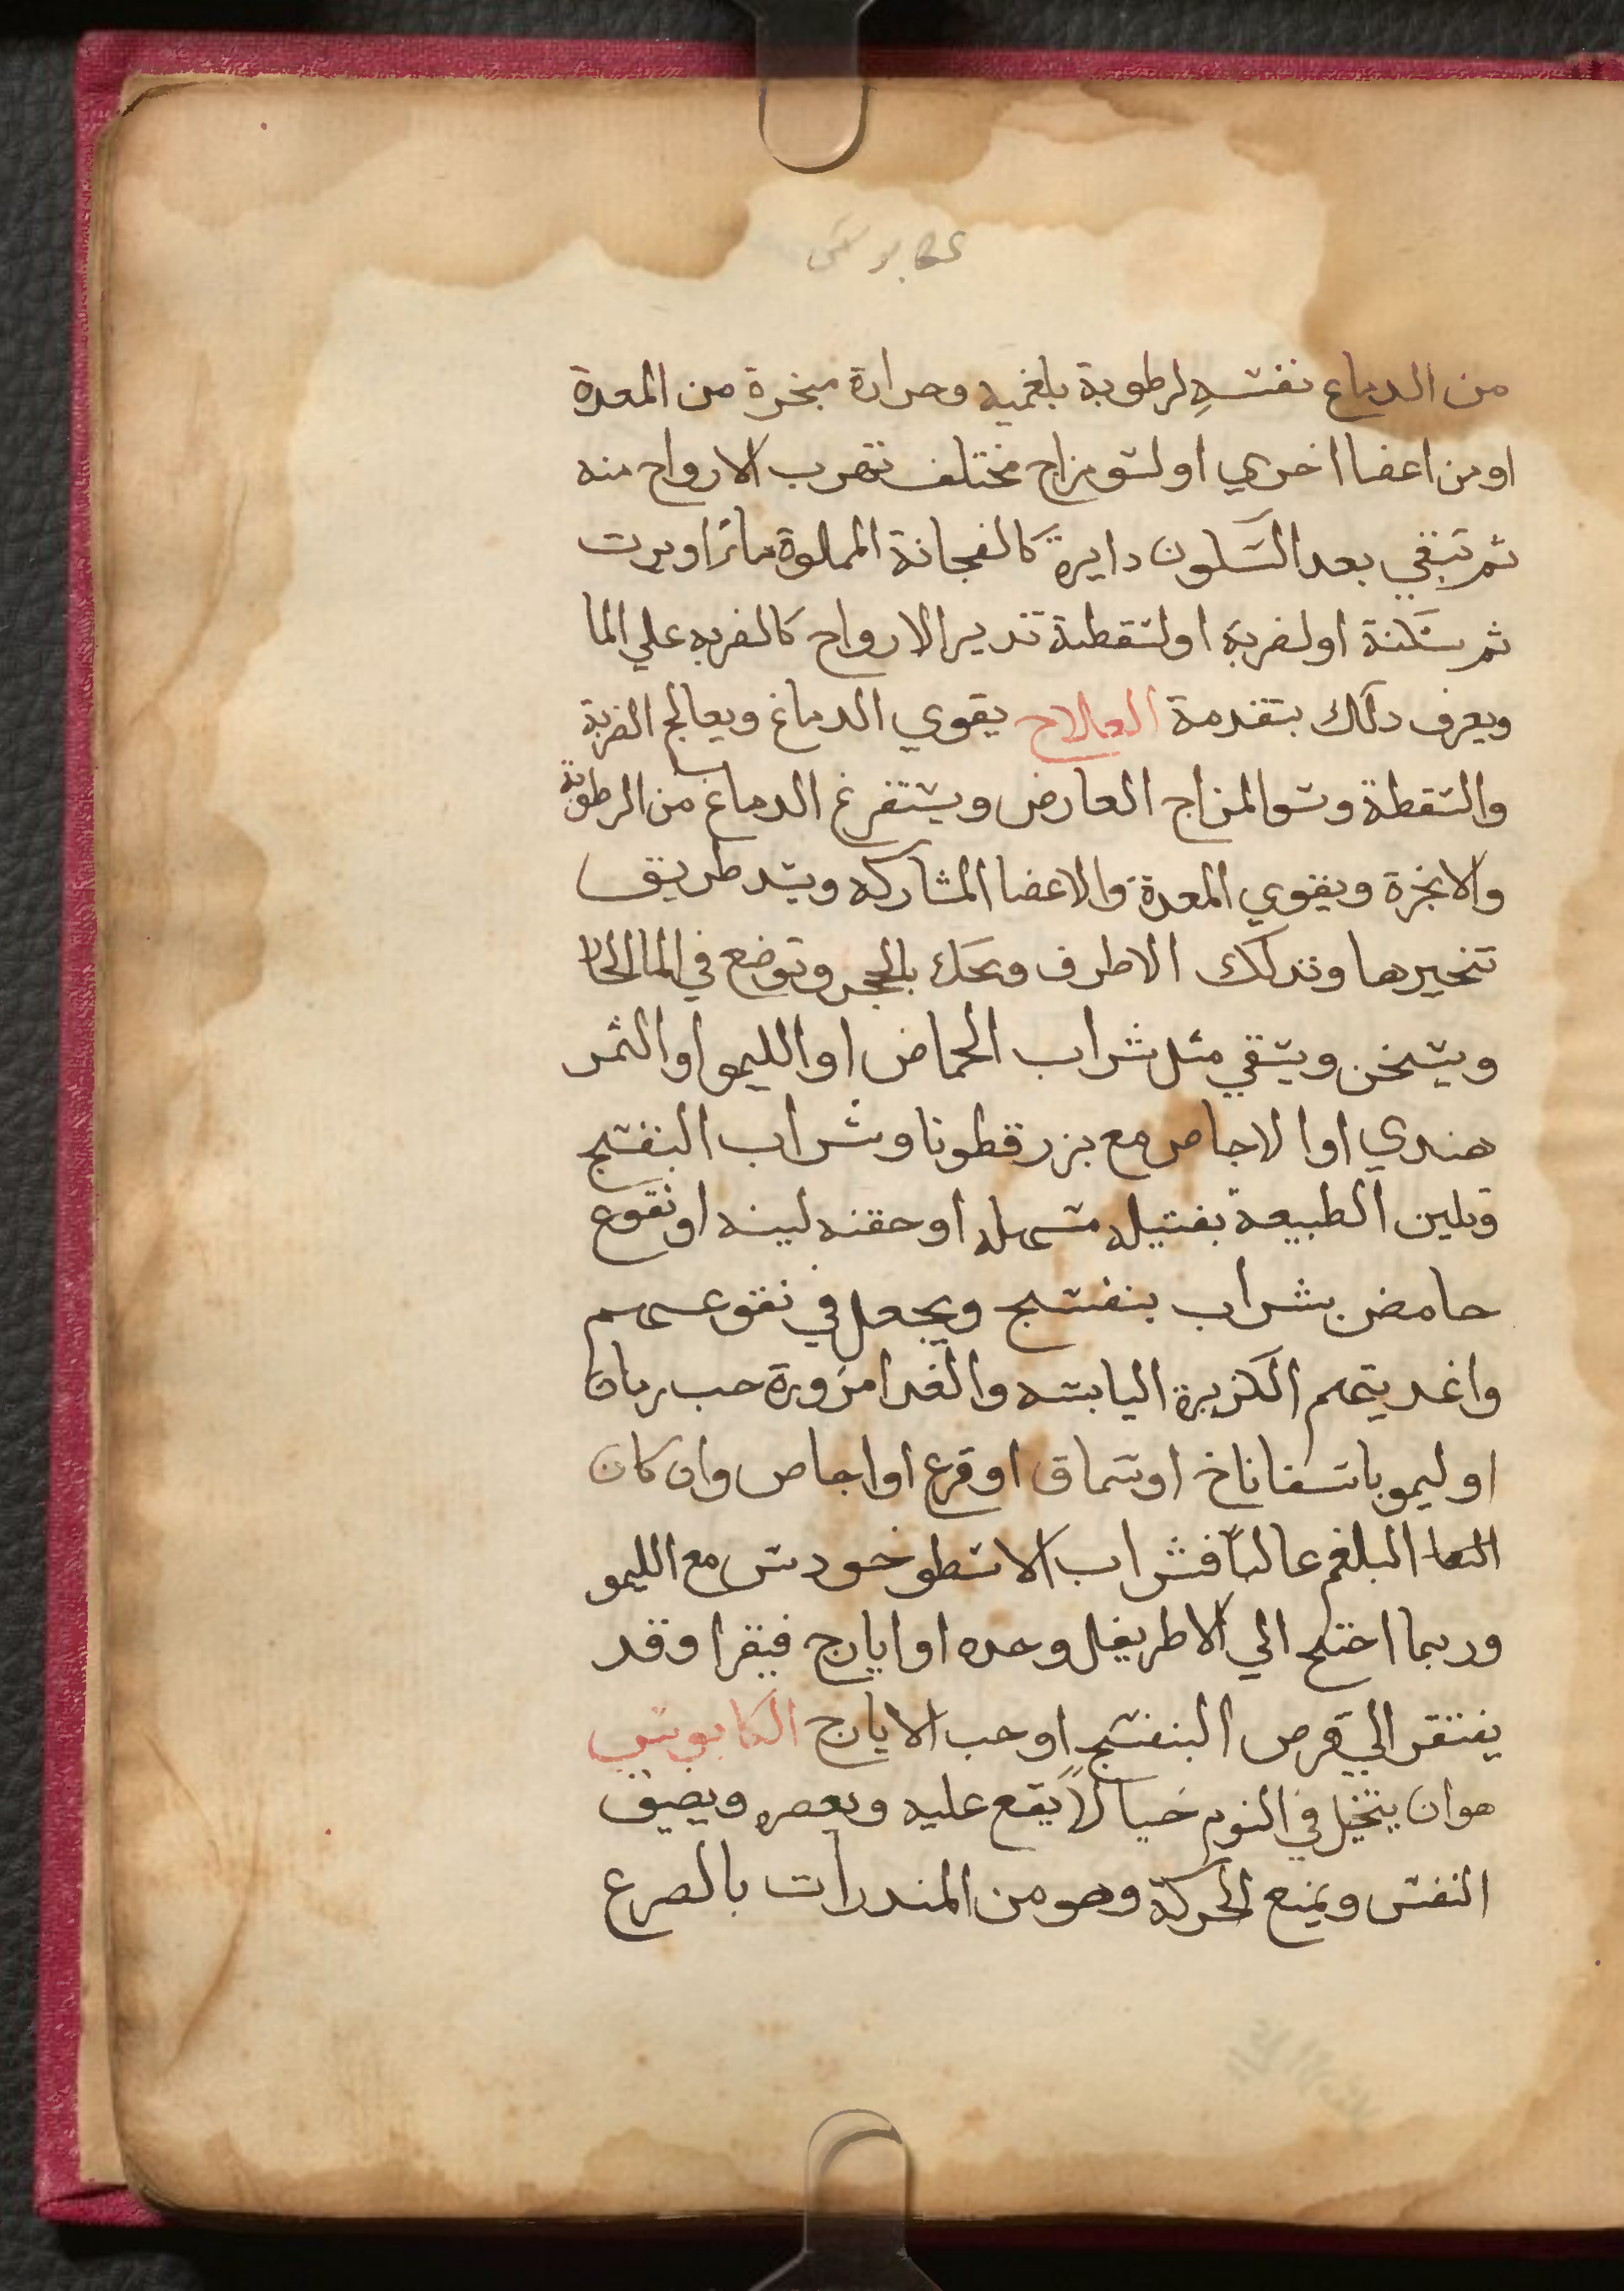 كابوس
من الدماع نفسه لرطوبة بلغميه وحرارة مبخرة من المعدة
اومن اعضا اخري اولسو مزاج مختلف تهرب الارواح منه
ثم تبقي بعد السكون دايرة كالفجانة المملوة ماتراوبرت
ثم سكنة اولضربة اولسقطة تدير الارواح كالضربه علي الما
ويعرف دلك بتقدمة العالاح يقوي الدماغ ويعالج الضربة
والسقطة وسوالمزاج العارض ويستفرغ الدماغ من الرطوبة
والابخرة ويقوي المعدة والاعضا المشاركه ويسد طريق
تبخيرها وتدلك الاطرف وتحك بالحجر وتوضع في الما الحار
ويسخن ويسقي مثل شراب الحماض او الليمو او الثمر
هندي اوالاجاص مع بزر قطونا وشراب البنفسج
وتلين الطبيعة بفتيله مسهله اوحقنه لينه اونقوع
حامض بشراب بنفسج ويجعل في نقوعهم
واغديتهم الكزبرة اليابسه والغدا مزورة حب رمان
اوليمو باسفاناخ اوسماق اوقرع اواجاص وان كان
البلغم عالبا فشراب الاسطوخودس مع الليمو
وربما احتج الي الاطريفل وحده اوايارج فيقرا وقد
يفتقر الي قرص البنفسج اوحب الايارج الكابوس
هوان يتخيل في النوم خيالا يقع عليه ويعصره ويضيق
النفس ويمنع الحركة وهو من المندرات بالصرع